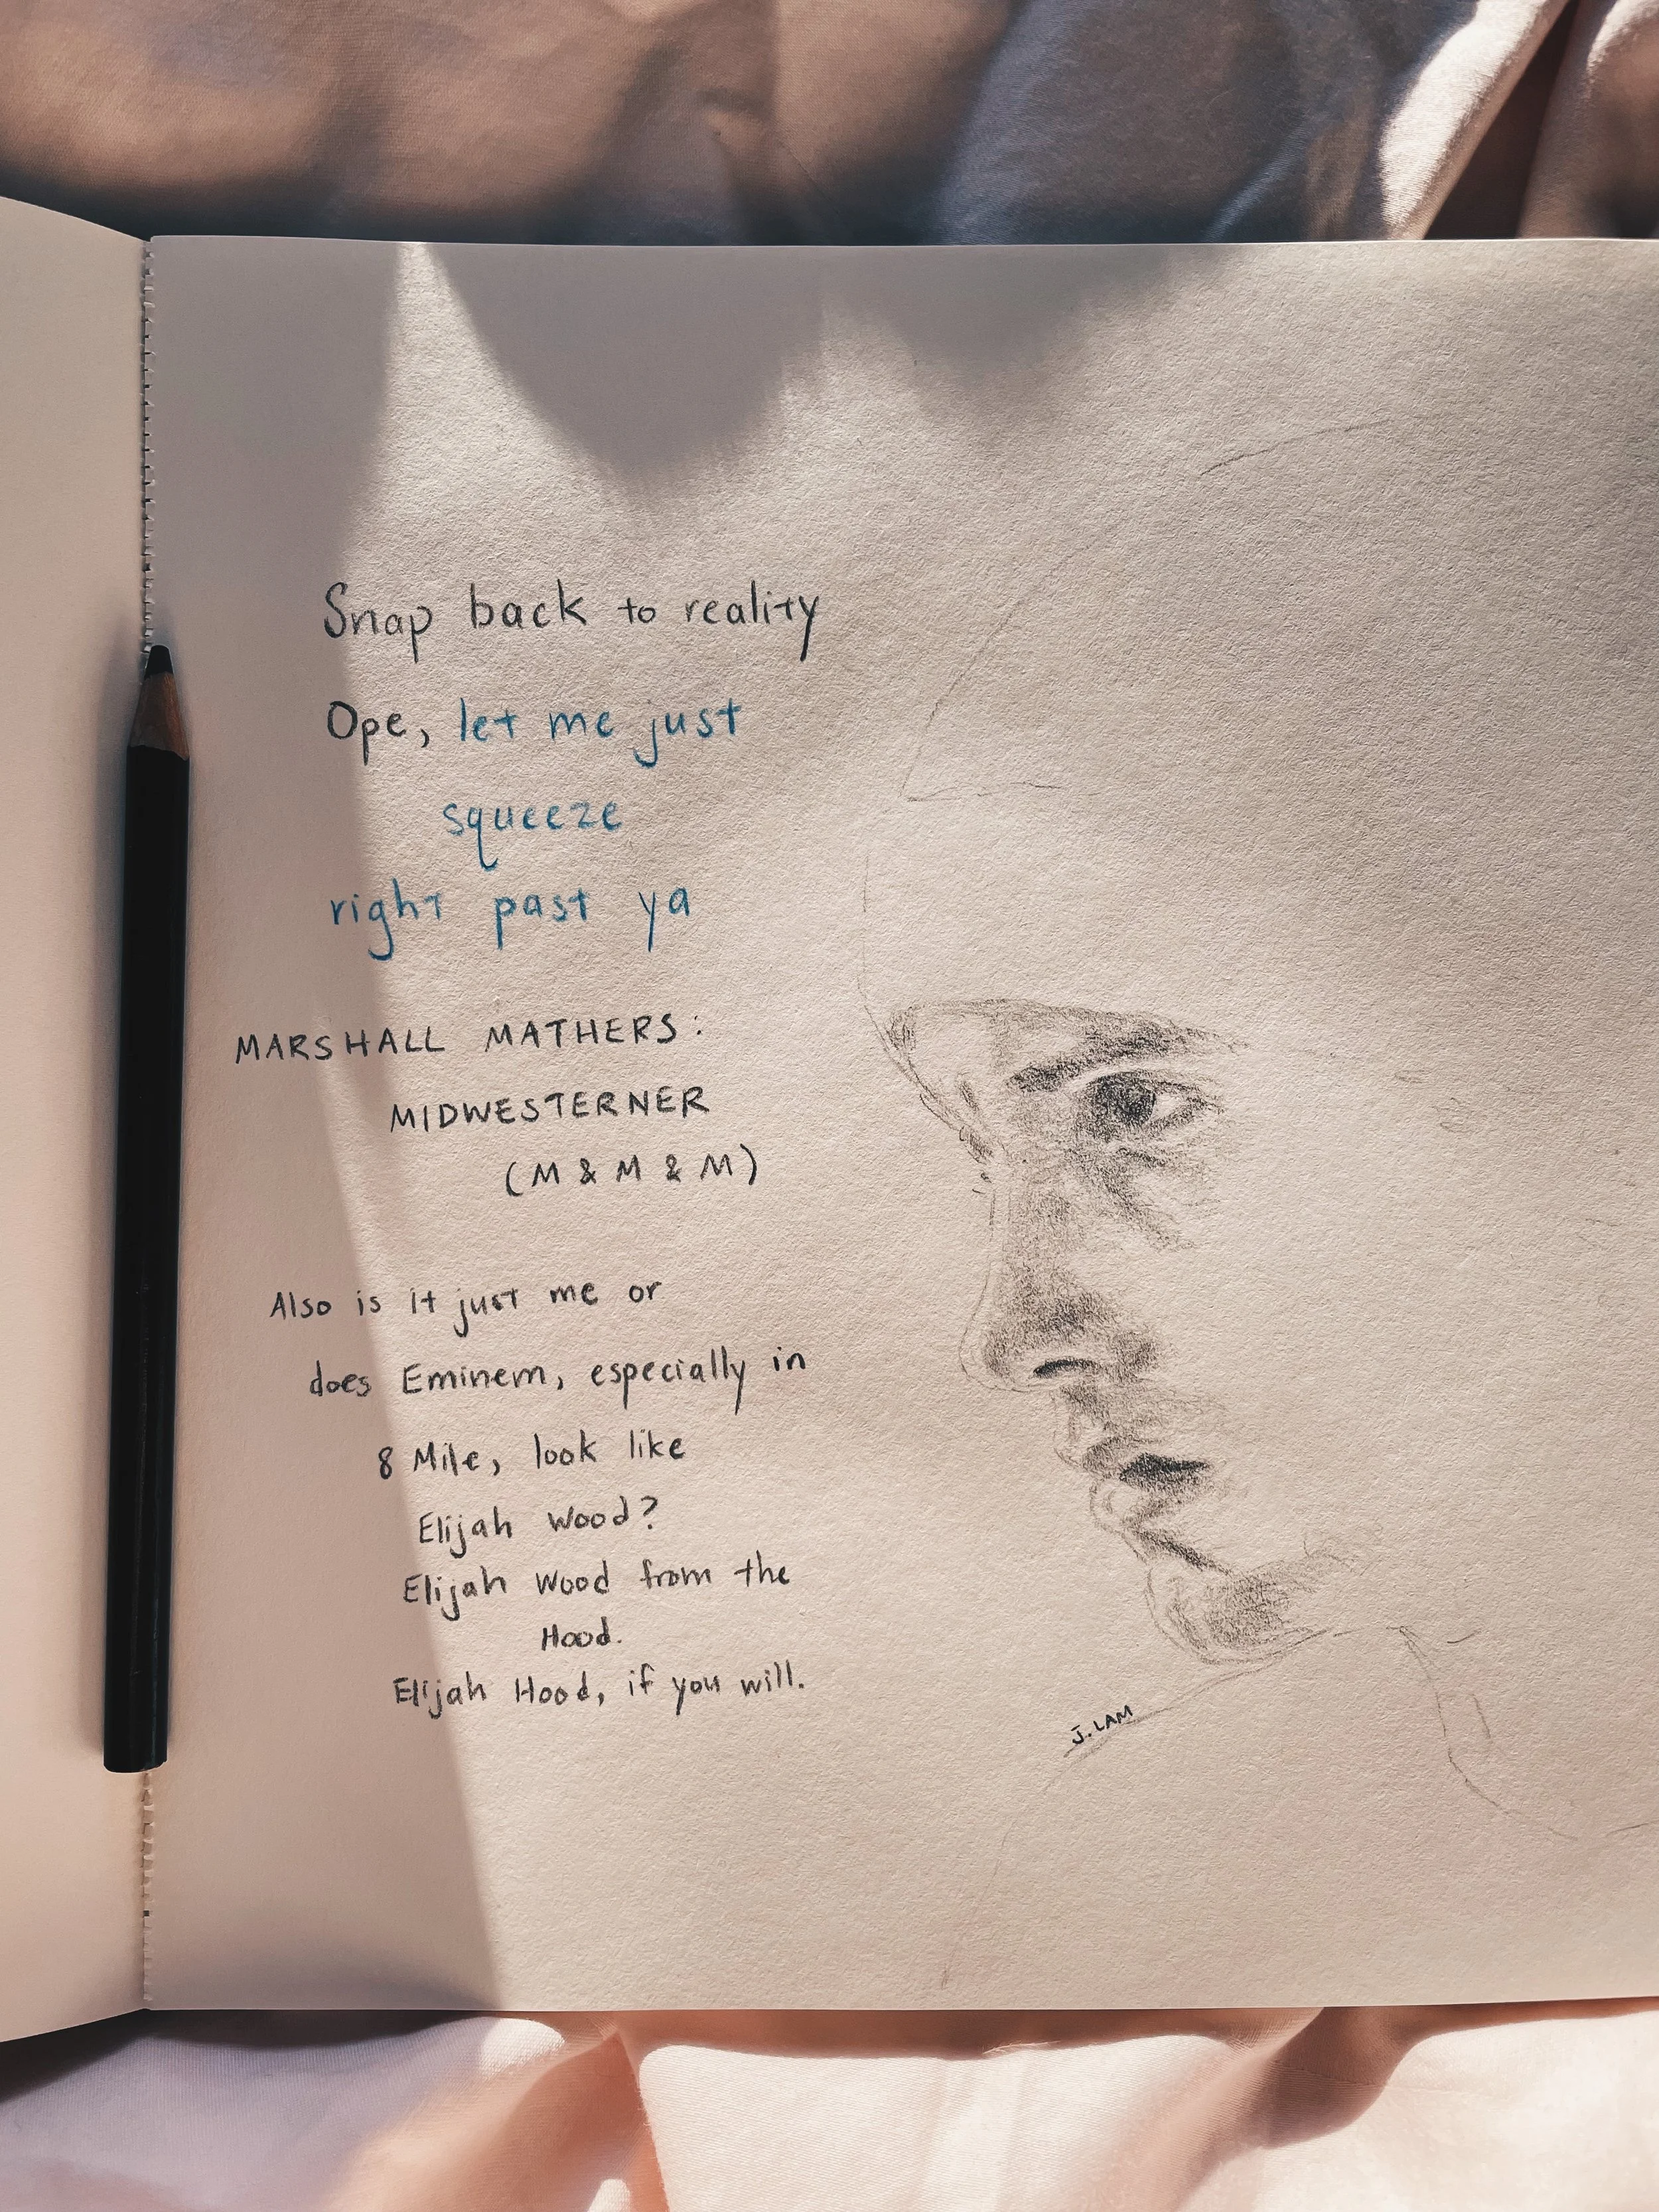 Snap back to reality
Ope, let me just
squeeze
right past ya
MARSHALL MATHERS:
MIDWESTERNER
(M & M & M)
Also is it just me or
does Eminem, especially in
8 Mile, look like
Elijah Wood?
Elijah Wood from the
Hood.
Elijah Hood, if you will.
J. LAM